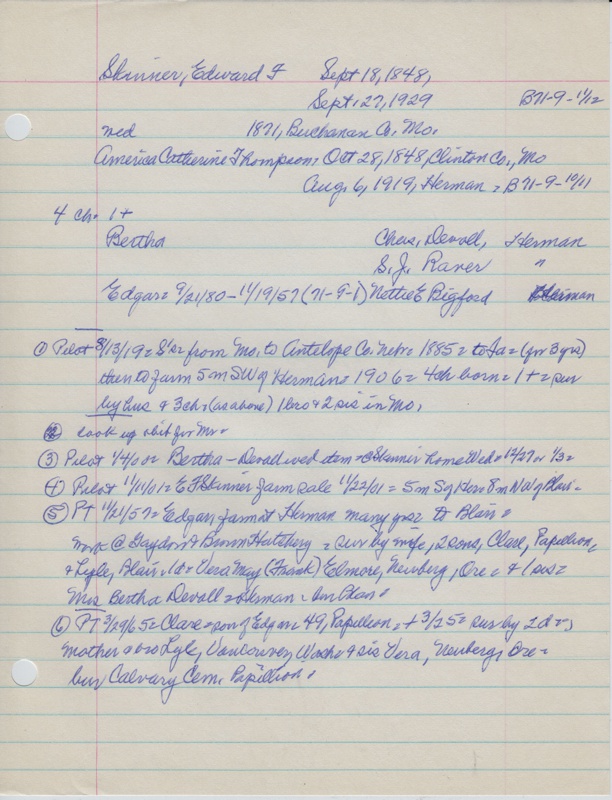 Skinner, Edward F Sept 18, 1848,
Sept. 27, 1929 B71-9-11/12
wed 1871, Buchanan Co. Mo.
America Catherine Thompson, Oct 28, 1848, Clinton Co., Mo
Aug. 6, 1919, Herman = B71-9-10/11
4 ch. 1+
Bertha Chas. Devoll, Herman
S. J. Raver "
Edgar = 9/21/80 - 11/19/57 (71-9-1) Nettie E Bigford Herman
① Pilot 8/13/19 = S's from Mo. to Antelope Co. Nebr = 1885 = to Ia = (for 3 yrs)
then to farm 5 m SW of Herman = 1906 = 4 ch born = 1+ = sur
by hus & 3 ch = (as above) 1 bro & 2 sis in Mo.
② look up obit for Mr =
③ Pilot 1/4/00 = Bertha - Devoll wed item = @ Skinner home Wed = 12/27 or 1/3 =
④ Pilot 11/11/01 = E F Skinner farm sale 11/22/01 = 5 m S of Her = 8 m NW of Blair =
⑤ PT 11/21/57 = Edgar farm at Herman many yrs = to Blair =
wrk @ Gaydou & Hatchery = sur by wife, 2 sons, Clare, Papillion,
& Lyle, Blair = 1 d = Vera May (Frank) Elmore, Newberg, Ore = & 1 sis =
Mrs Bertha Devoll = Herman =
⑥ PT 3/29/65 = Clare = son of Edgar = 49, Papillion, + 3/25 = sur by 2 d =,
mother & bro Lyle, Vancouver, Wash & sis Vera, Newberg, Ore =
bur Calvary Cem. Papillion =